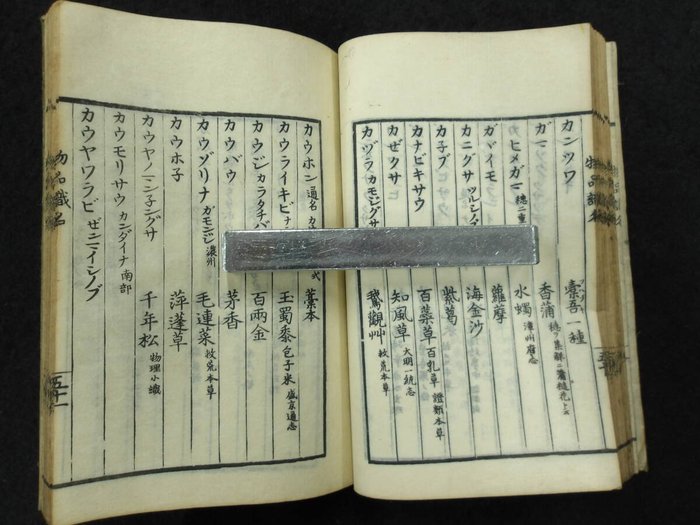 カンツワ 橐吾一種
ガマ 香蒲
ヒメガマ 穂二重 水蠋 漳州府志
ガヾイモ 蘿摩
カニグサ ツルシノブ 海金沙
カ子ブ 紫葛
カナビキサウ 百蘂草 百乳草 證類本草
カゼクサ 知風草 大明一統志
カヅラ カモジグサ 鵞觀艸 救荒本草
カウホン 通名 藁本
カウライキビ 玉蜀黍 包子米 盛京通志
カウジ カラタチバ 百兩金
カウバウ 茅香
カウゾリナ ガモジ 濃州 毛連菜 救荒本草
カウホ子 萍蓬草
カウヤノマン子ングサ 千年松 物理小識
カウモリサウ カンダイナ 南部
カウヤワラビ ゼニマイシノブ
物品識名
五十一